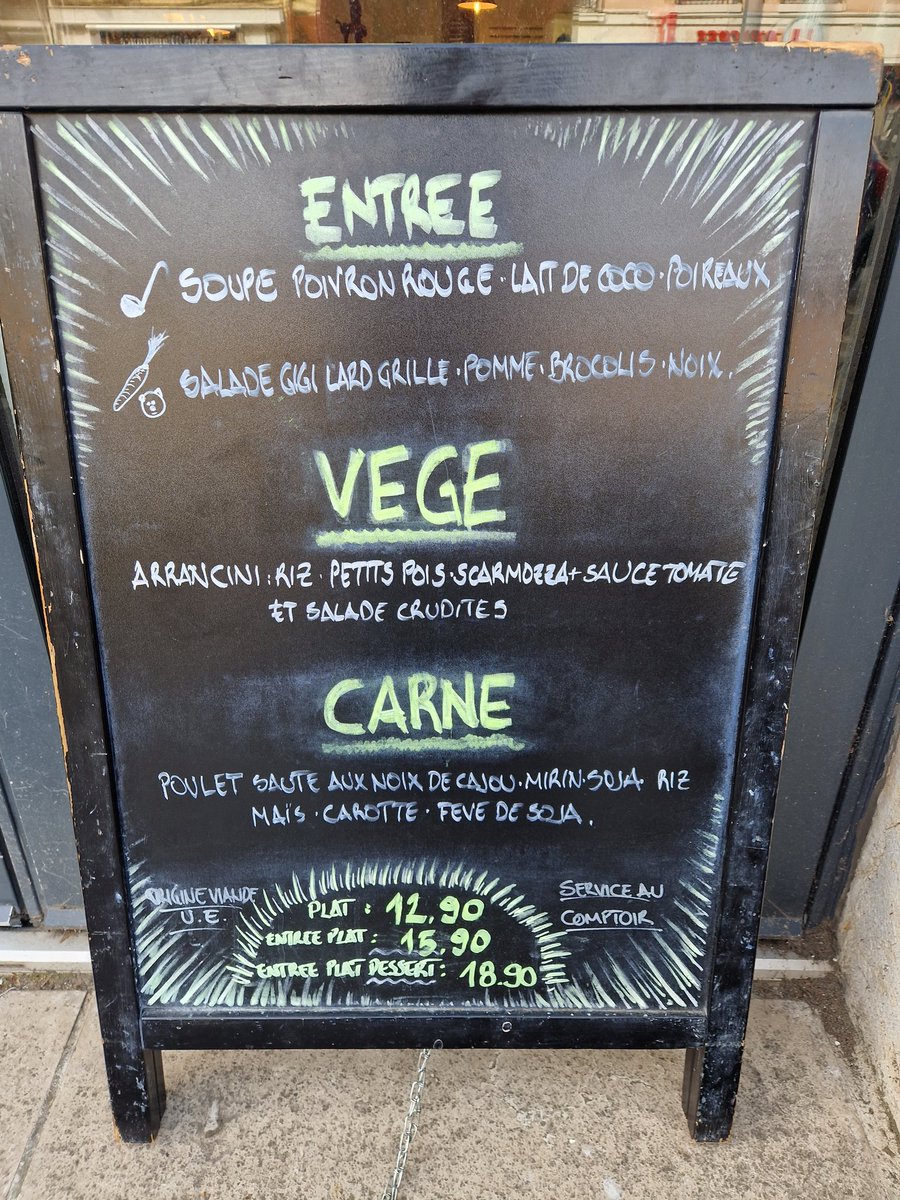 ENTREE
SOUPE POIVRON ROUGE · LAIT DE COCO · POIREAUX
SALADE GIGI LARD GRILLE · POMME · BROCOLIS · NOIX.
VEGE
ARRANCINI : RIZ · PETITS POIS · SCARMOZZA + SAUCE TOMATE
ET SALADE CRUDITES
CARNE
POULET SAUTE AUX NOIX DE CAJOU · MIRIN · SOJA RIZ
MAÏS · CAROTTE · FEVE DE SOJA.
ORIGINE VIANDE
U.E.
PLAT : 12.90
ENTREE PLAT : 15.90
ENTREE PLAT DESSERT : 18.90
SERVICE AU
COMPTOIR